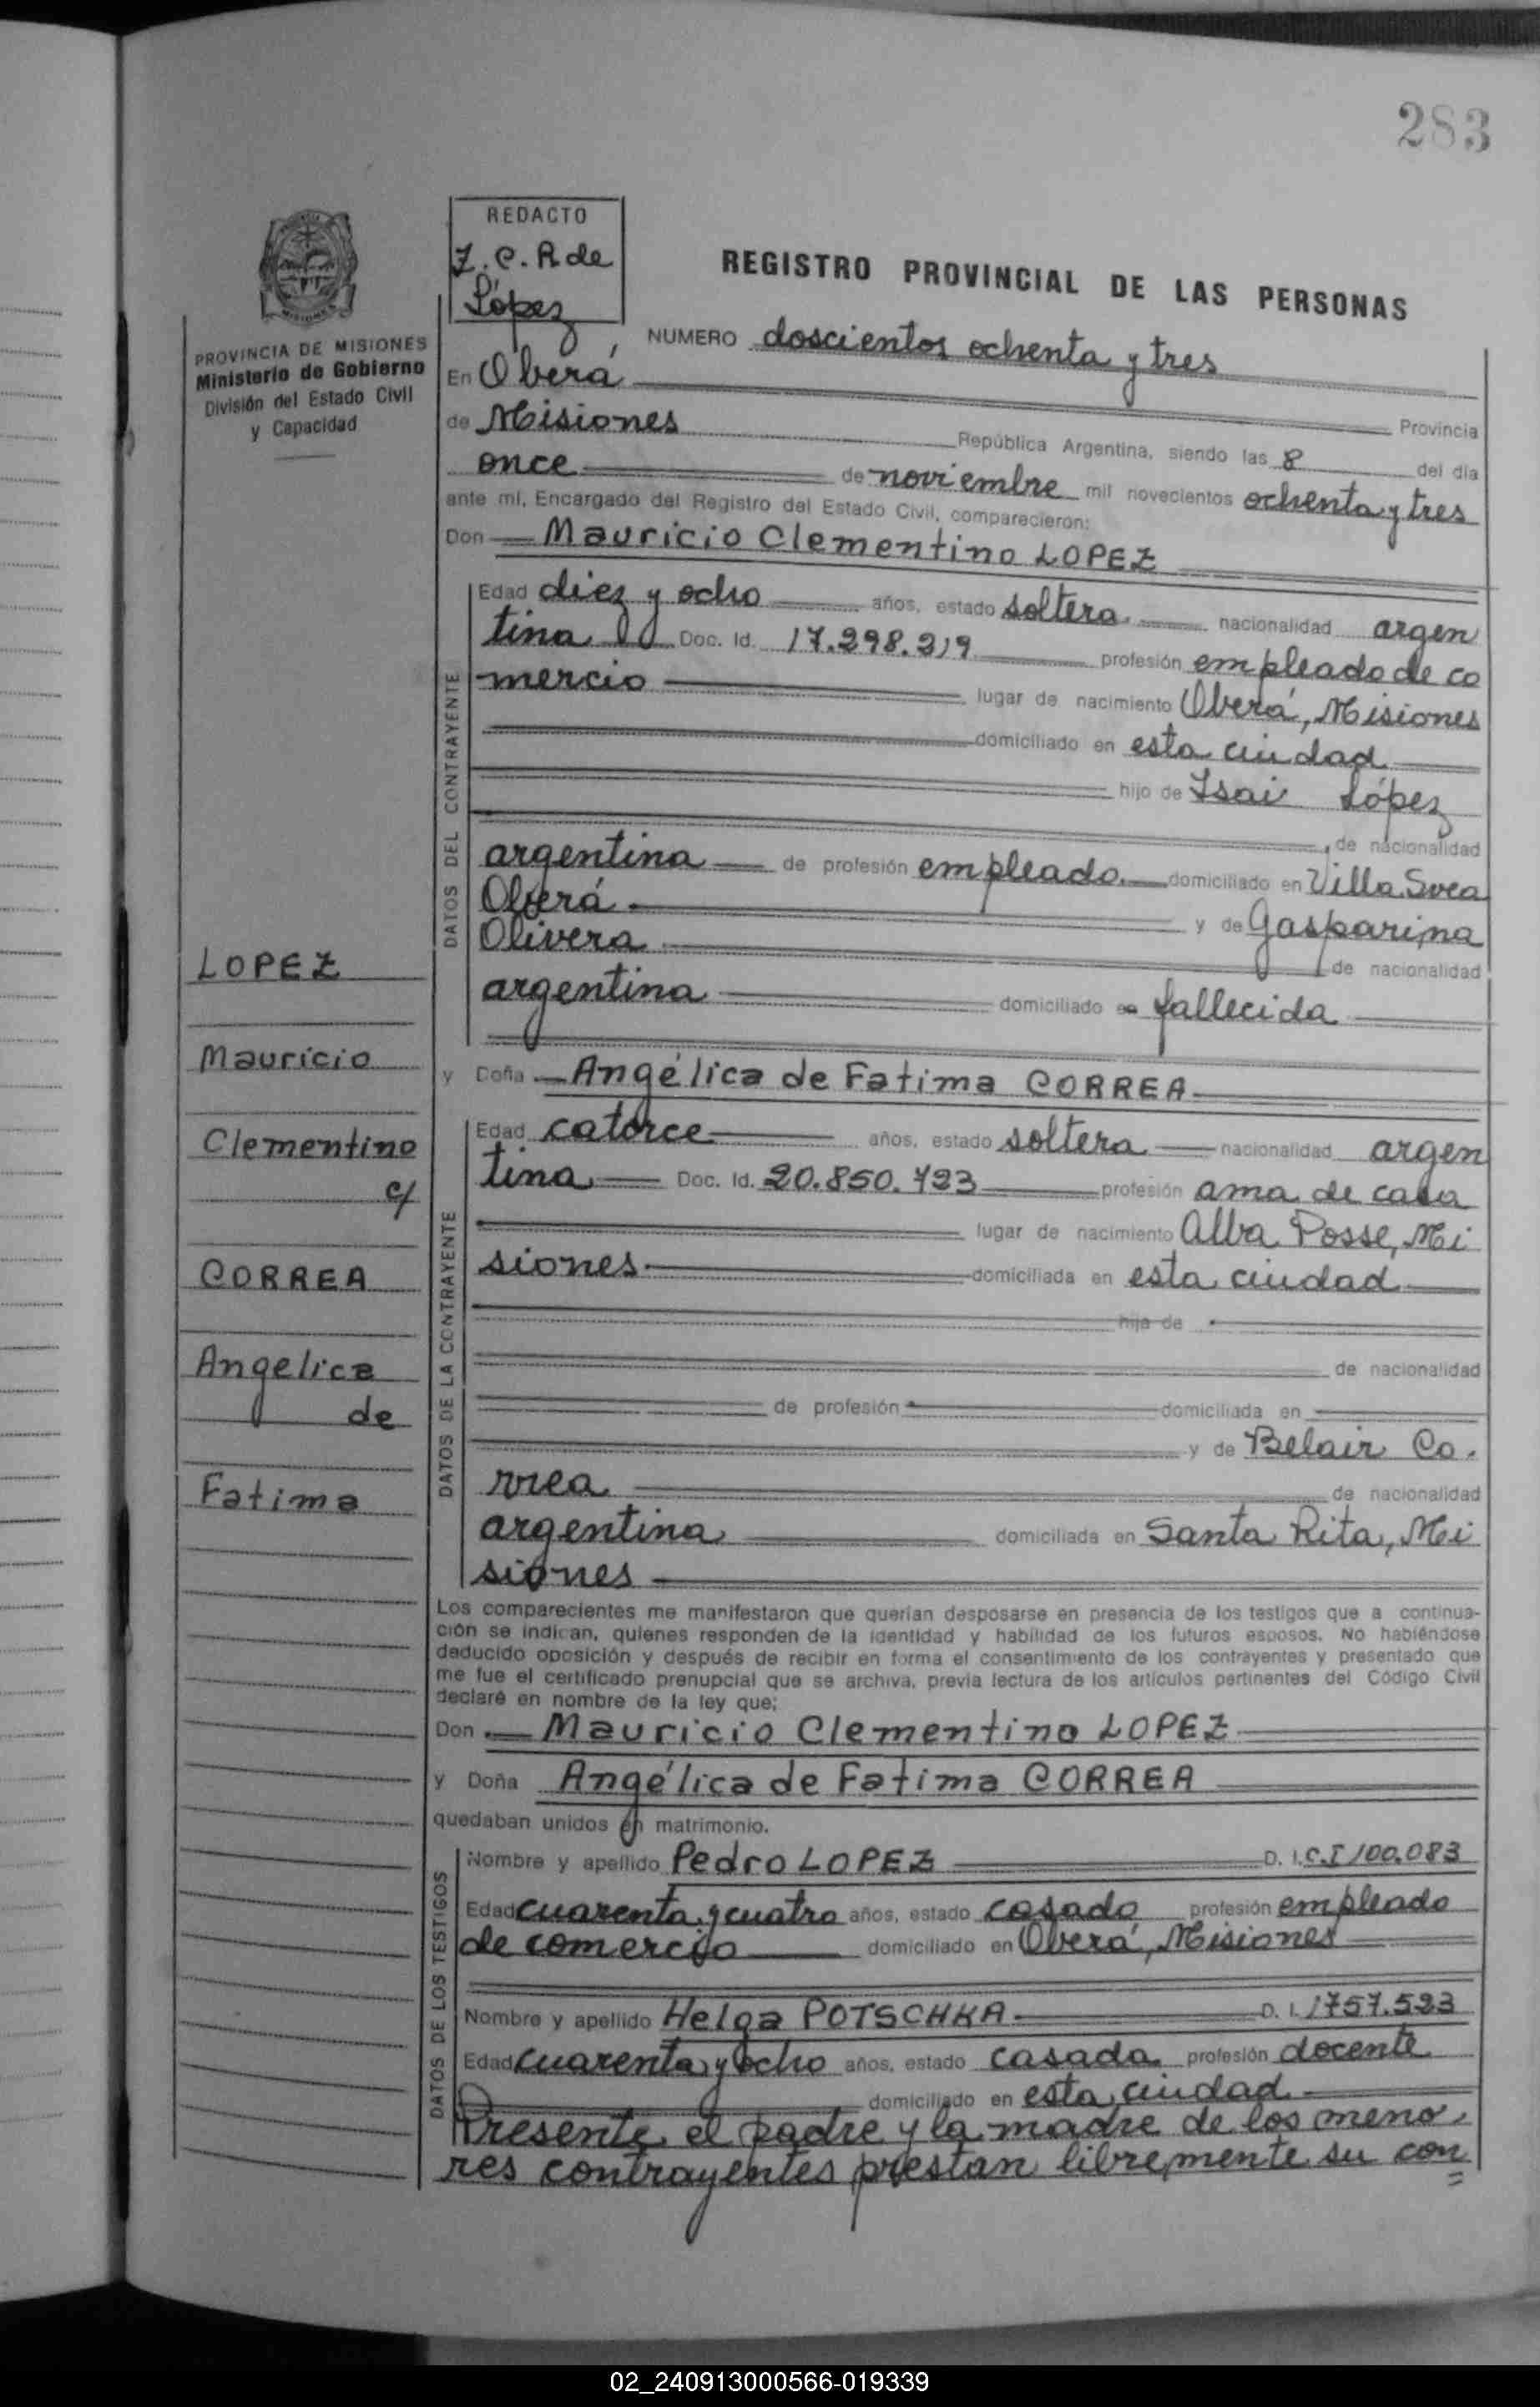 283
REDACTO
Z. C. R de
López
REGISTRO PROVINCIAL DE LAS PERSONAS
PROVINCIA DE MISIONES
Ministerio de Gobierno
División del Estado Civil
y Capacidad
NUMERO doscientos ochenta y tres
En Oberá Provincia
de Misiones República Argentina, siendo las 8 del día
once de noviembre mil novecientos ochenta y tres
ante mí, Encargado del Registro del Estado Civil, comparecieron:
Don Mauricio Clementino LOPEZ
DATOS DEL CONTRAYENTE
Edad diez y ocho años, estado soltero nacionalidad argen
tina Doc. Id. 17.298.219 profesión empleado de co
mercio lugar de nacimiento Oberá, Misiones
domiciliado en esta ciudad
hijo de Isai López
de nacionalidad
argentina de profesión empleado domiciliado en Villa Svea
Oberá y de Gasparina
Olivera de nacionalidad
argentina domiciliado en fallecida
y Doña Angélica de Fatima CORREA
DATOS DE LA CONTRAYENTE
Edad catorce años, estado soltera nacionalidad argen
tina Doc. Id. 20.850.423 profesión ama de casa
lugar de nacimiento Alba Posse, Mi
siones domiciliada en esta ciudad
hija de
de nacionalidad
de profesión domiciliada en
y de Belair Co.
rrea de nacionalidad
argentina domiciliada en Santa Rita, Mi
siones
LOPEZ
Mauricio
Clementino
c/
CORREA
Angelica
de
Fatima
Los comparecientes me manifestaron que querían desposarse en presencia de los testigos que a continua-
ción se indican, quienes responden de la identidad y habilidad de los futuros esposos. No habiéndose
deducido oposición y después de recibir en forma el consentimiento de los contrayentes y presentado que
me fue el certificado prenupcial que se archiva, previa lectura de los artículos pertinentes del Código Civil
declaré en nombre de la ley que:
Don Mauricio Clementino LOPEZ
y Doña Angélica de Fatima CORREA
quedaban unidos en matrimonio.
DATOS DE LOS TESTIGOS
Nombre y apellido Pedro LOPEZ D. I. C.I 100.083
Edad cuarenta y cuatro años, estado casado profesión empleado
de comercio domiciliado en Oberá, Misiones
Nombre y apellido Helga POTSCHKA D. I. 1757.523
Edad cuarenta y ocho años, estado casada profesión docente
domiciliado en esta ciudad
Presente el padre y la madre de los meno
res contrayentes prestan libremente su con=
02_240913000566-019339